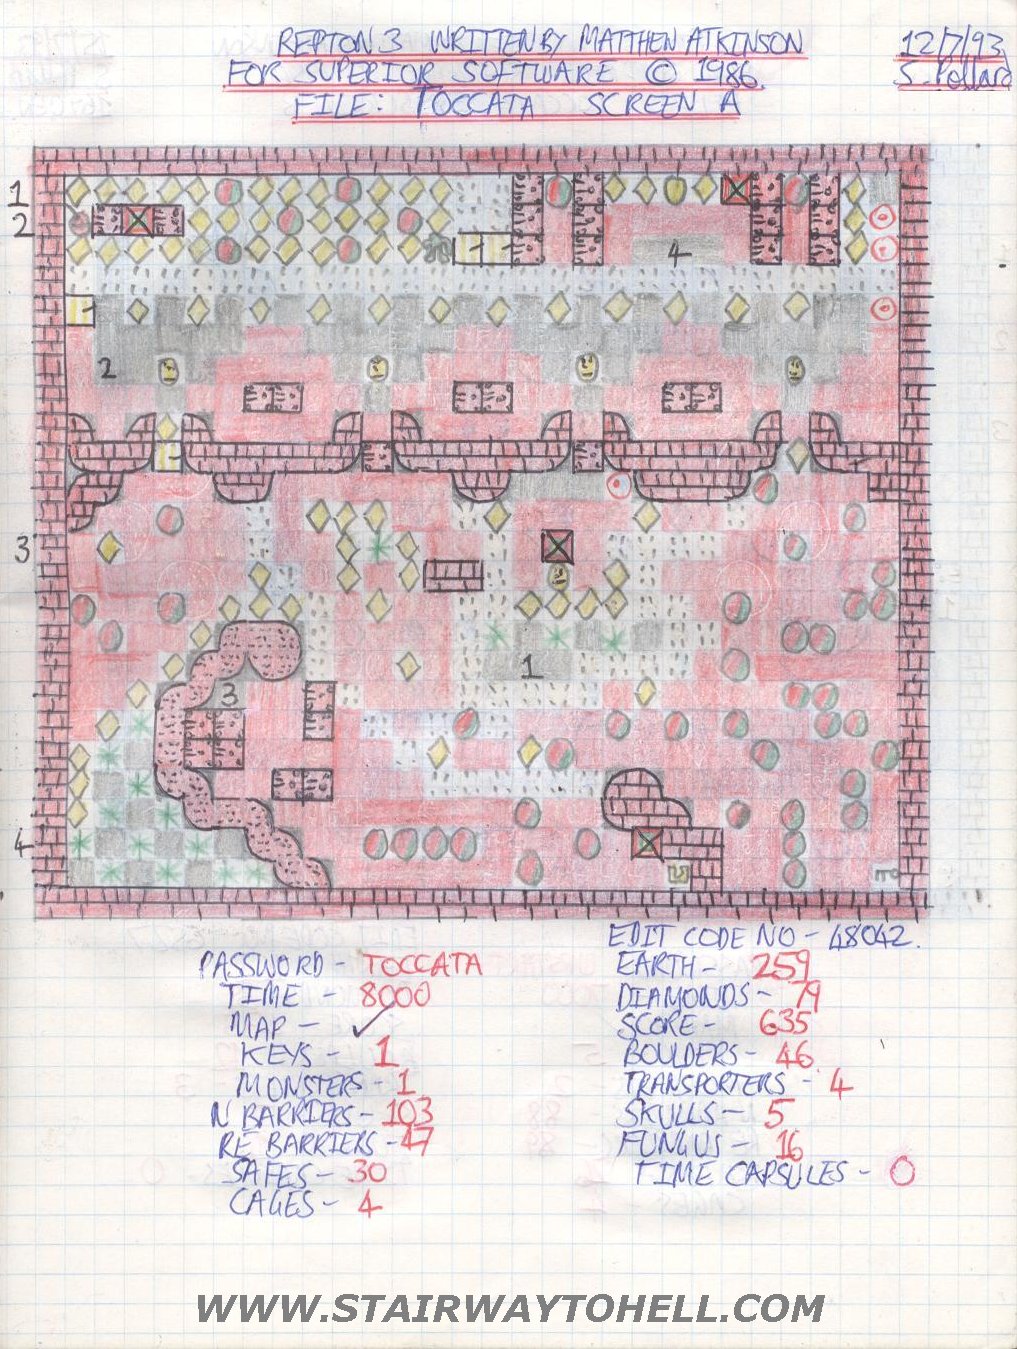 REPTON 3 WRITTEN BY MATTHEN ATKINSON
FOR SUPERIOR SOFTWARE © 1986.
FILE: TOCCATA SCREEN A
12/7/93.
S. Pollard
1
2
3
4
4
2
1
3
EDIT CODE NO - 48042.
PASSWORD - TOCCATA
TIME - 8000
MAP - ✓
KEYS - 1
MONSTERS - 1
N BARRIERS - 103
RE BARRIERS - 47
SAFES - 30
CAGES - 4
EARTH - 259
DIAMONDS - 79
SCORE - 635
BOULDERS - 46
TRANSPORTERS - 4
SKULLS - 5
FUNGUS - 16
TIME CAPSULES - 0
WWW.STAIRWAYTOHELL.COM